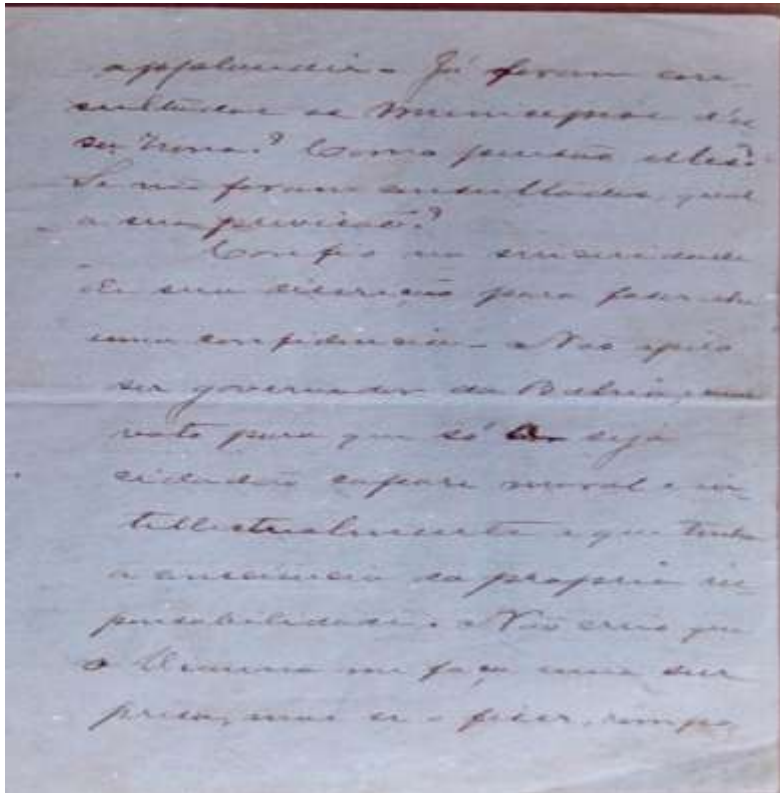 applaudir. Já foram con-
sultados os Municipios d'es
sa zona? Como pensão elles?
Se não foram consultados, qual
a sua previsão?
Confio na sinceridade
e sua discrição para fazer-lhe
uma confidencia. Não
ser governador da Bahia, mas
voto para que só o seja
cidadão capaz moral e in-
tellectualmente e que tenha
a consciencia da propria res
ponsabilidade. Não creio que
o Vianna me faça uma sur
presa, mas se o fizer, rompo,